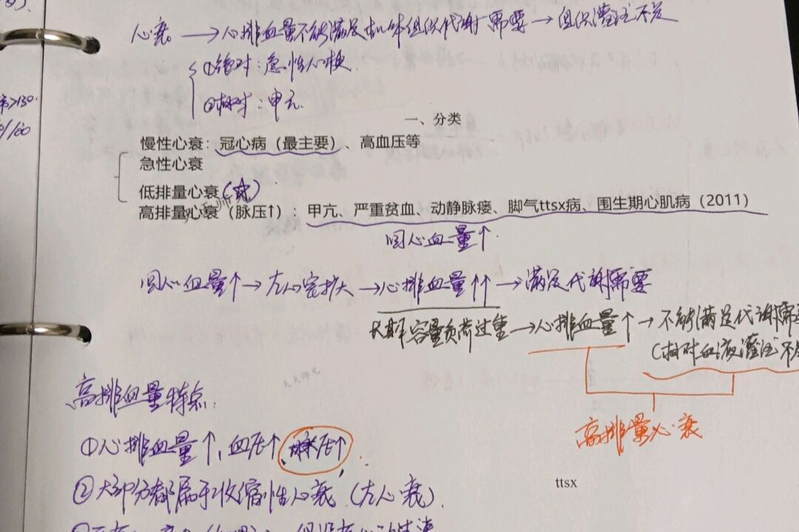 心衰 → 心排血量不能满足机体组织代谢需要 → 组织灌注不足
①绝对：急性心梗
②相对：甲亢
>130
/100
一、分类
慢性心衰：冠心病（最主要）、高血压等
急性心衰
低排量心衰
高排量心衰（脉压↑）：甲亢、严重贫血、动静脉瘘、脚气ttsx病、围生期心肌病（2011）
回心血量↑
回心血量↑→左心室扩大→心排血量↑↑→满足代谢需要
长期容量负荷过重→心排血量↑→不能满足代谢需
(相对血液灌注不
高排血量特点：
高排量心衰
①心排血量↑，血压↑，脉压↑
②大部分都属于收缩性心衰（左心衰）
ttsx